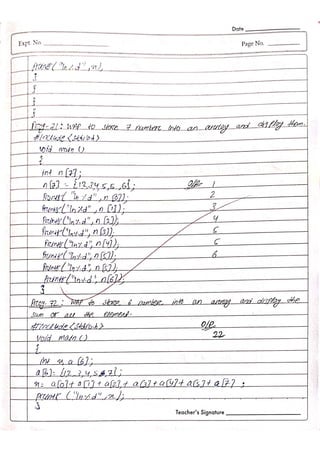 Date
Expt. No.
Page No.
printf ("\n%d", n);
}
}
}
}
Prog-21: WAP to store 7 numbers into an array and display them.
#include <stdio.h>
void main ()
{
int n [7];
n[7] = {1,2,3,4,5,5,6}; o/p= 1
Printf ("\n%d", n [0]); 2
Printf ("\n%d", n [1]); 3
Printf ("\n%d", n [2]); 4
Printf ("\n%d", n [3]); 5
Printf ("\n%d", n [4]); 5
Printf ("\n%d", n [5]); 6
Printf ("\n%d", n [5]);
Printf ("\n%d", n[6]);
}
Prog 22: WAP to store 6 number into an array and display the
sum of all the element.
#include <stdio.h> o/p
void main () 22
{
int n, a [6];
a[6]= {1,2,3,4,5,7};
n= a[0]+ a[1]+ a[2]+ a[3]+a[4]+ a[5]+ a[7];
printf ("\n%d", n);
}
Teacher's Signature